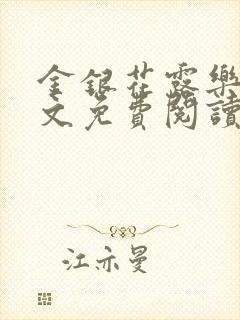 金银花露樂
文免費閱讀
江亦曼